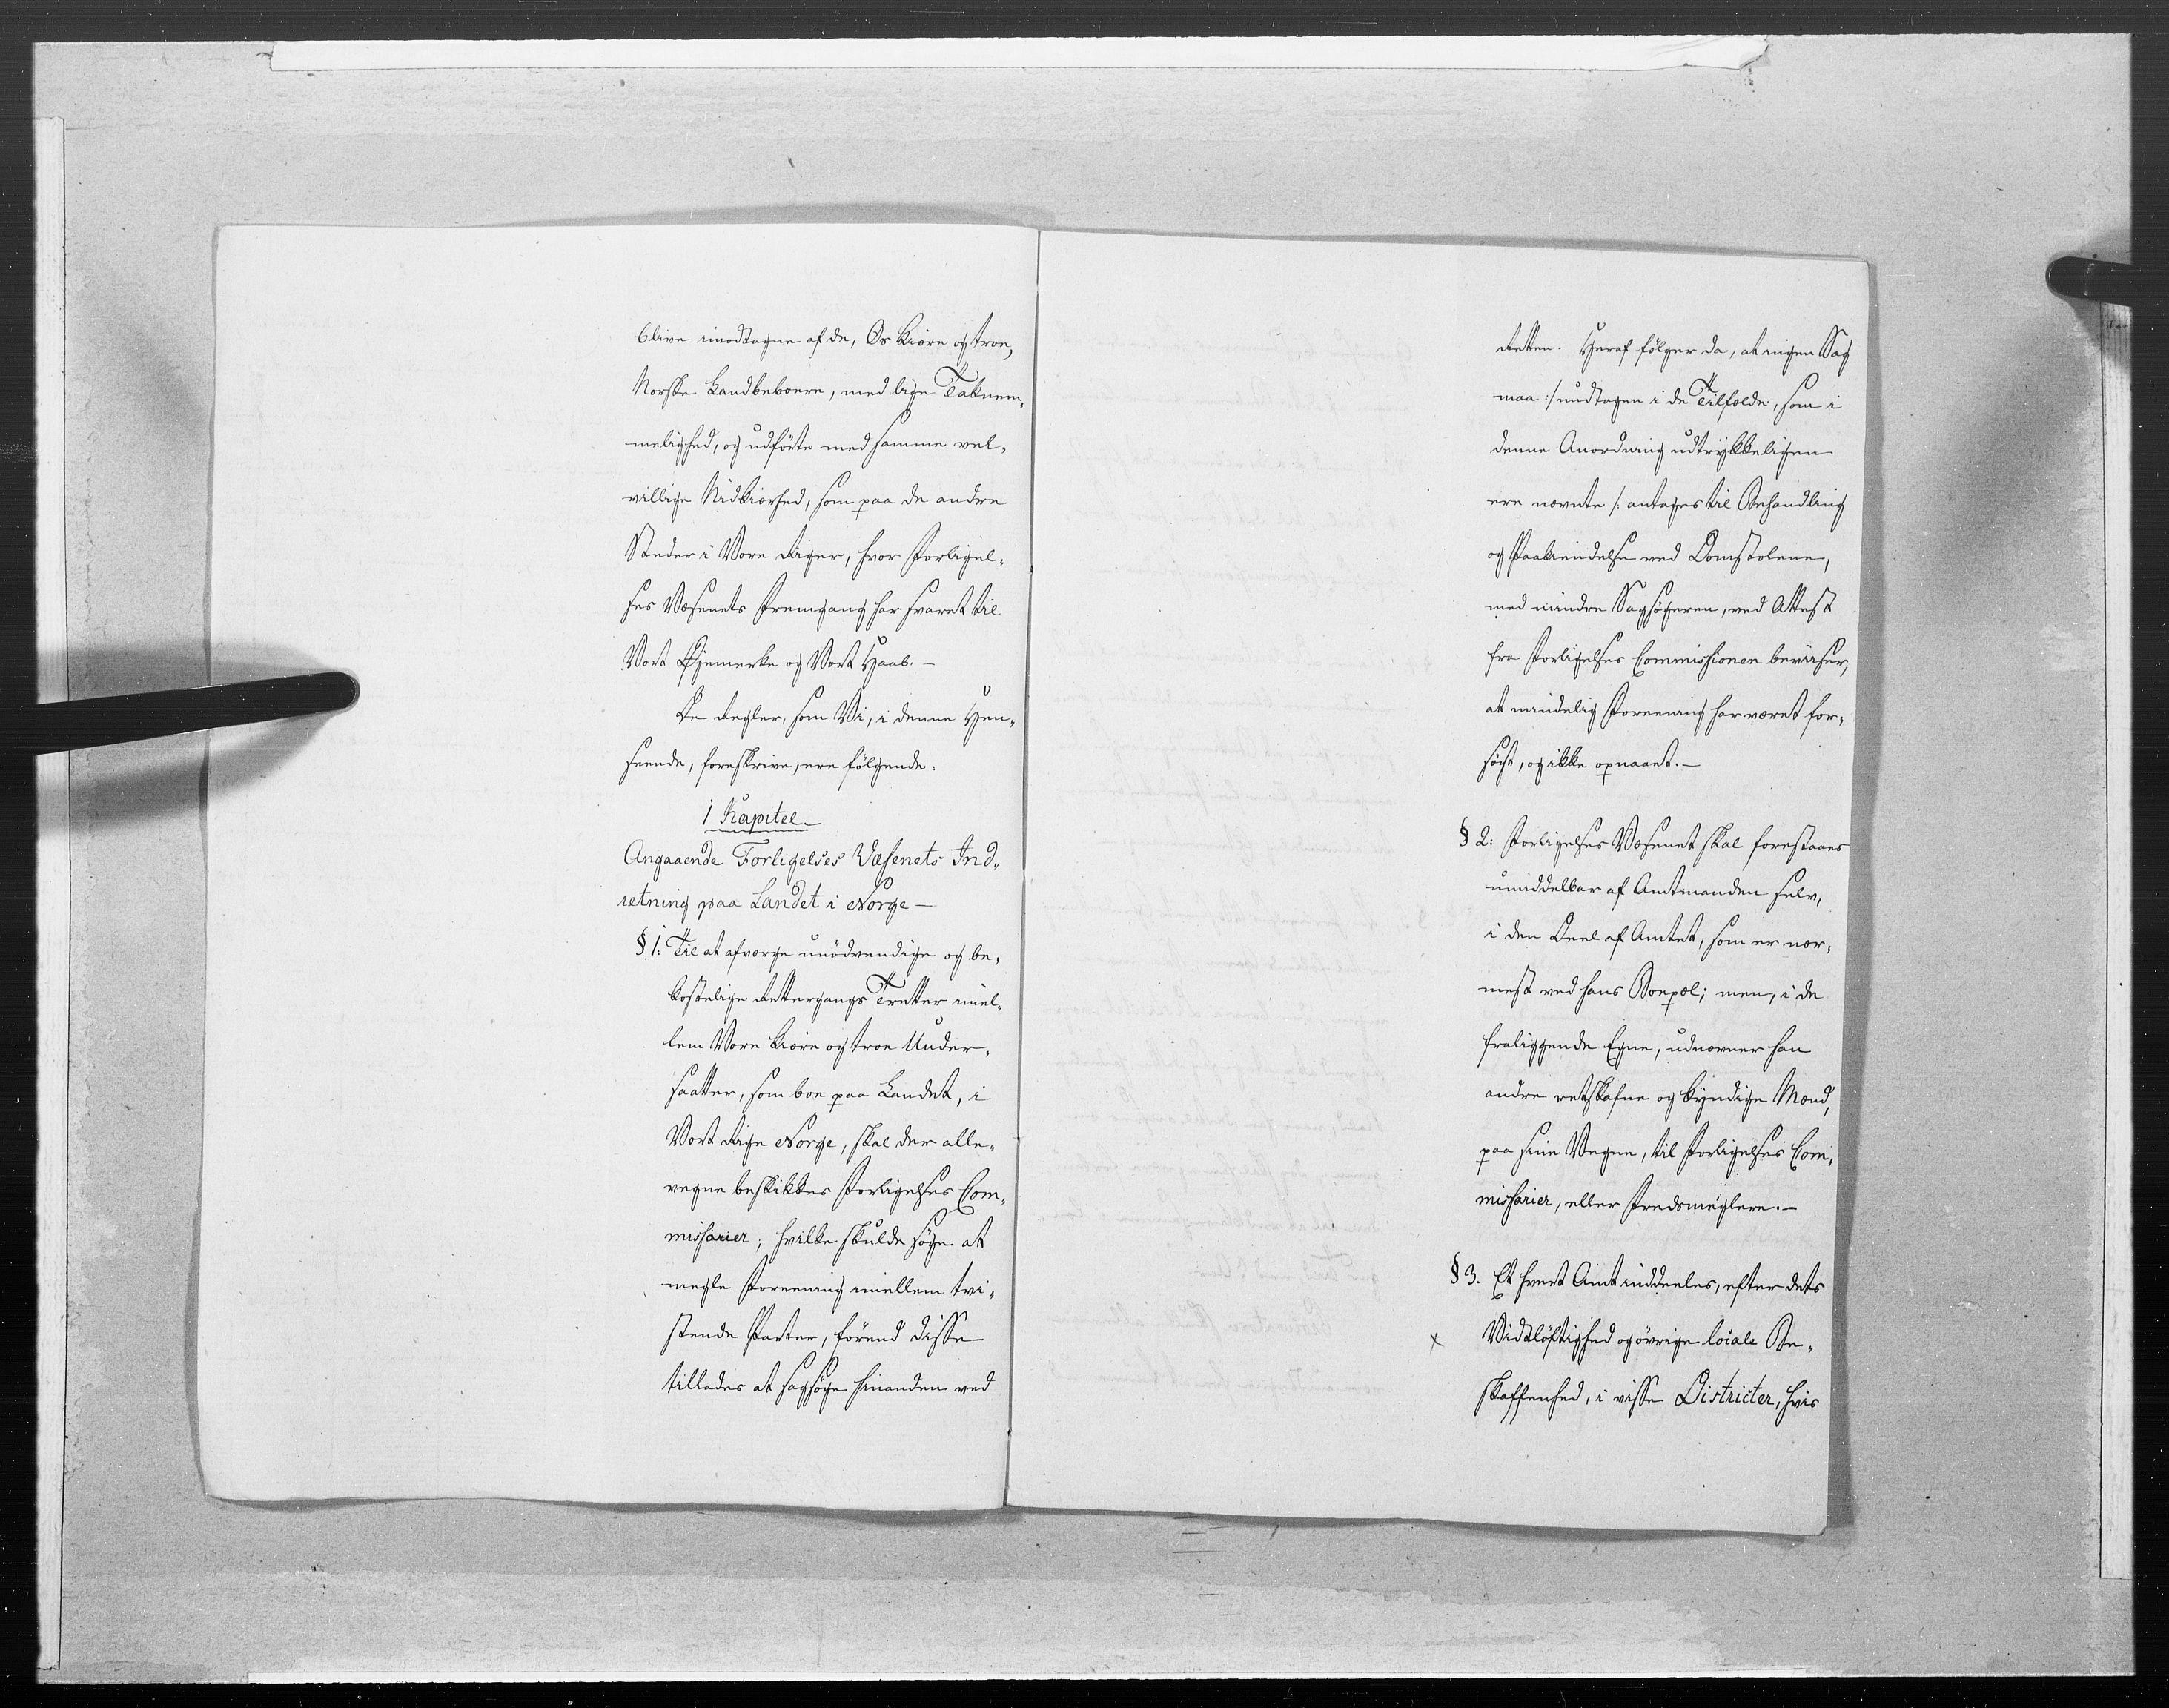 blive imodtagne af de, Os kiære og troe,
Norske Landbeboere, med lige Taknem„
melighed, og udførte med samme vel„
villige Nidkiærhed, som paa de andre
Steder i Vore Riger, hvor Forligel„
ses Væsenets Fremgang har svaret til
Vort Øjemerke og Vort Haab. —
De Regler, som Vi, i denne Hen„
seende, foreskrive, ere følgende:
1 Kapitel.
Angaaende Forligelses Væsenets Ind„
retning paa Landet i Norge —
§ 1. Til at afværge unødvendige og be„
kostelige Rettergangs Tretter imel„
lem Vore kiære og troe Under„
saatter, som boe paa Landet, i
Vort Rige Norge, skal der alle„
vegne beskikkes Forligelses Com„
missarier; hvilke skulde søge at
megle Foreening imellem tvi„
stende Parter, førend disse
tillades at sagsøge hinanden ved
Retten. Heraf følger da, at ingen Sag
maa :/ undtagen i de Tilfælde, som i
denne Anordning udtrykkeligen
ere nævnte /: antages til Behandling
og Paakiendelse ved Domstolene,
med mindre Sagsøgeren, ved Attest
fra Forligelses Commissionen beviiser,
at mindelig Foreening har været for„
søgt, og ikke opnaaet. —
§ 2: Forligelses Væsenet skal forestaaes
umiddelbar af Amtmanden selv,
i den Deel af Amtet, som er nær„
mest ved hans Boepæl; men, i de
fraliggende Egne, udnævner han
andre retskafne og kyndige Mænd,
paa sine Vegne, til Forligelses Com„
missarier, eller Fredsmæglere. —
§ 3. Et hvert Amt inddeeles, efter dets
x Vidtløftighed og øvrige locale Be„
skaffenhed, i visse Districter, hvis